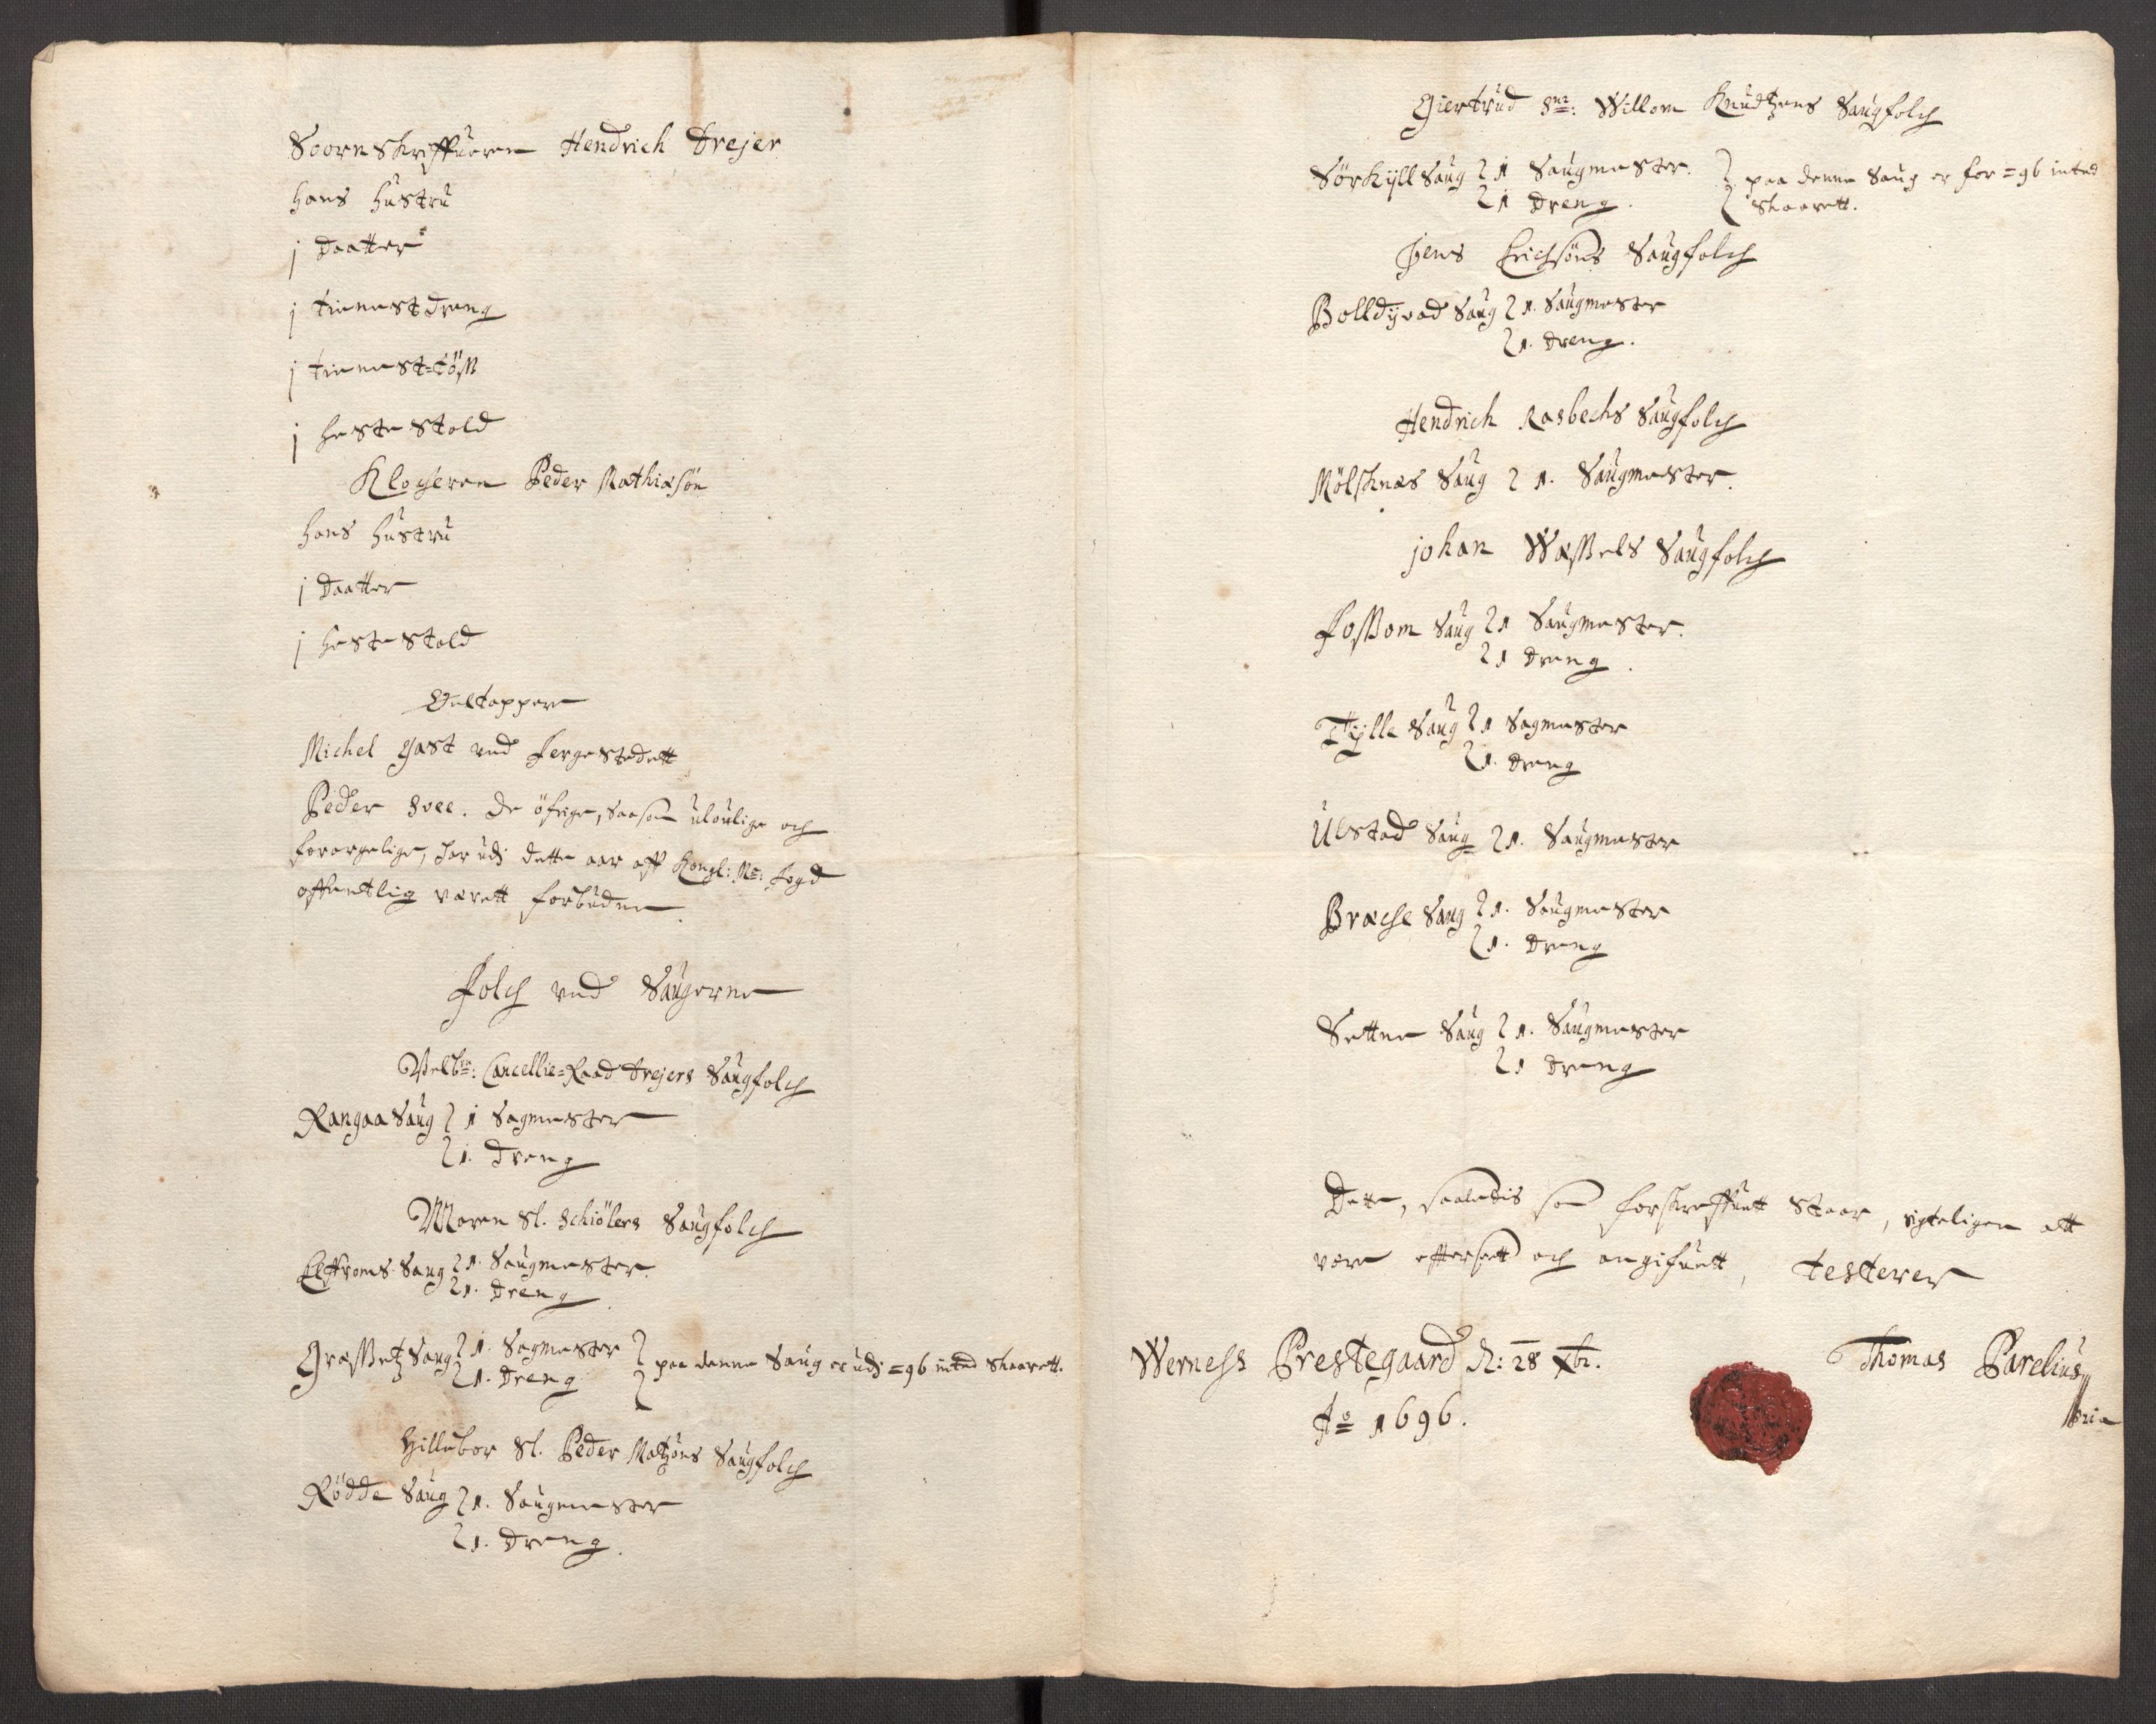 Soorn Skriffueren Hendrich Drejer
hans hustru
j Daatter
j tienest dreng
j tienest-töß
j heste stold
Klocheren Peder Mathiæsön
hans hustru
j Daatter
j heste stold
Ölltappere
Michel Gast ved fergestedett
Peder Svee. De öfrige, saasom uloulige och
forargelige, har udj dette aar aff Kongl: Ms: fogd
offentlig værett forbuden
Folch ved Saugerne
Velbr: Cancellie-Raad Drejers Saugfolch
Rangaa Saug 1 Sagmester
1. Dreng
Maren Sl. Schiölers Saugfolch
Elstroms Saug 1. Saugmester
1. Dreng
Græßetz Saug 1. Sagmester
1. Dreng
paa denne Saug er udj =96 inted skaarett.
Hillebor Sl. Peder Matzöns Saugfolch
Rödde Saug 1. Saugmester
1. Dreng
Giertrud Sl: Willom Knudtzens Saugfolch
Sörkyll Saug 1 Saugmester
1 Dreng.
paa denne Saug er for =96 inted
skaarett.
Jens Erichsöns Saugfolch
Bolldyvad Saug 1. Saugmester
1. dreng.
Hendrich Rasbechs Saugfolch
Mölsknæs Saug 1. Saugmester
johan Wæßels Saugfolch
Foßom Saug 1 Saugmester.
1 dreng.
Tylle Saug 1 Sagmester
1. dreng
Ulstad Saug 1. Saugmester
Bræche Saug 1. Saugmester
1. dreng
Settne Saug 1. Saugmester
1 dreng
Dette, saaledis som forskreffuett staar, rigteligen att
være efftersett och angifuett, testerer
Werness Prestegaard d: 28 Xbr.
Ao 1696.
Thomas Parelius
mria